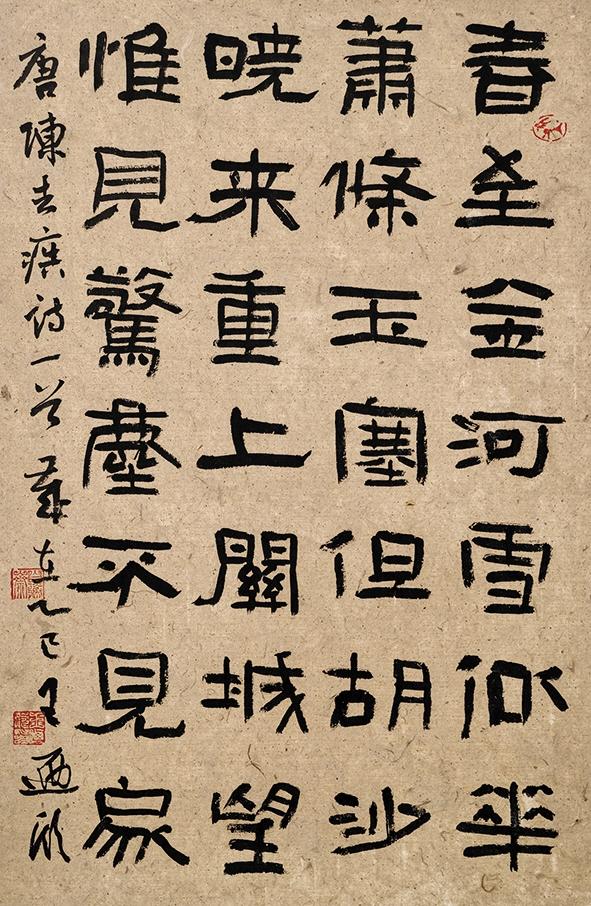 春至金河雪似華
蕭條玉塞但胡沙
暁来重上關城望
惟見驚塵不見家
唐陳去疾詩一首歲在乙巳王